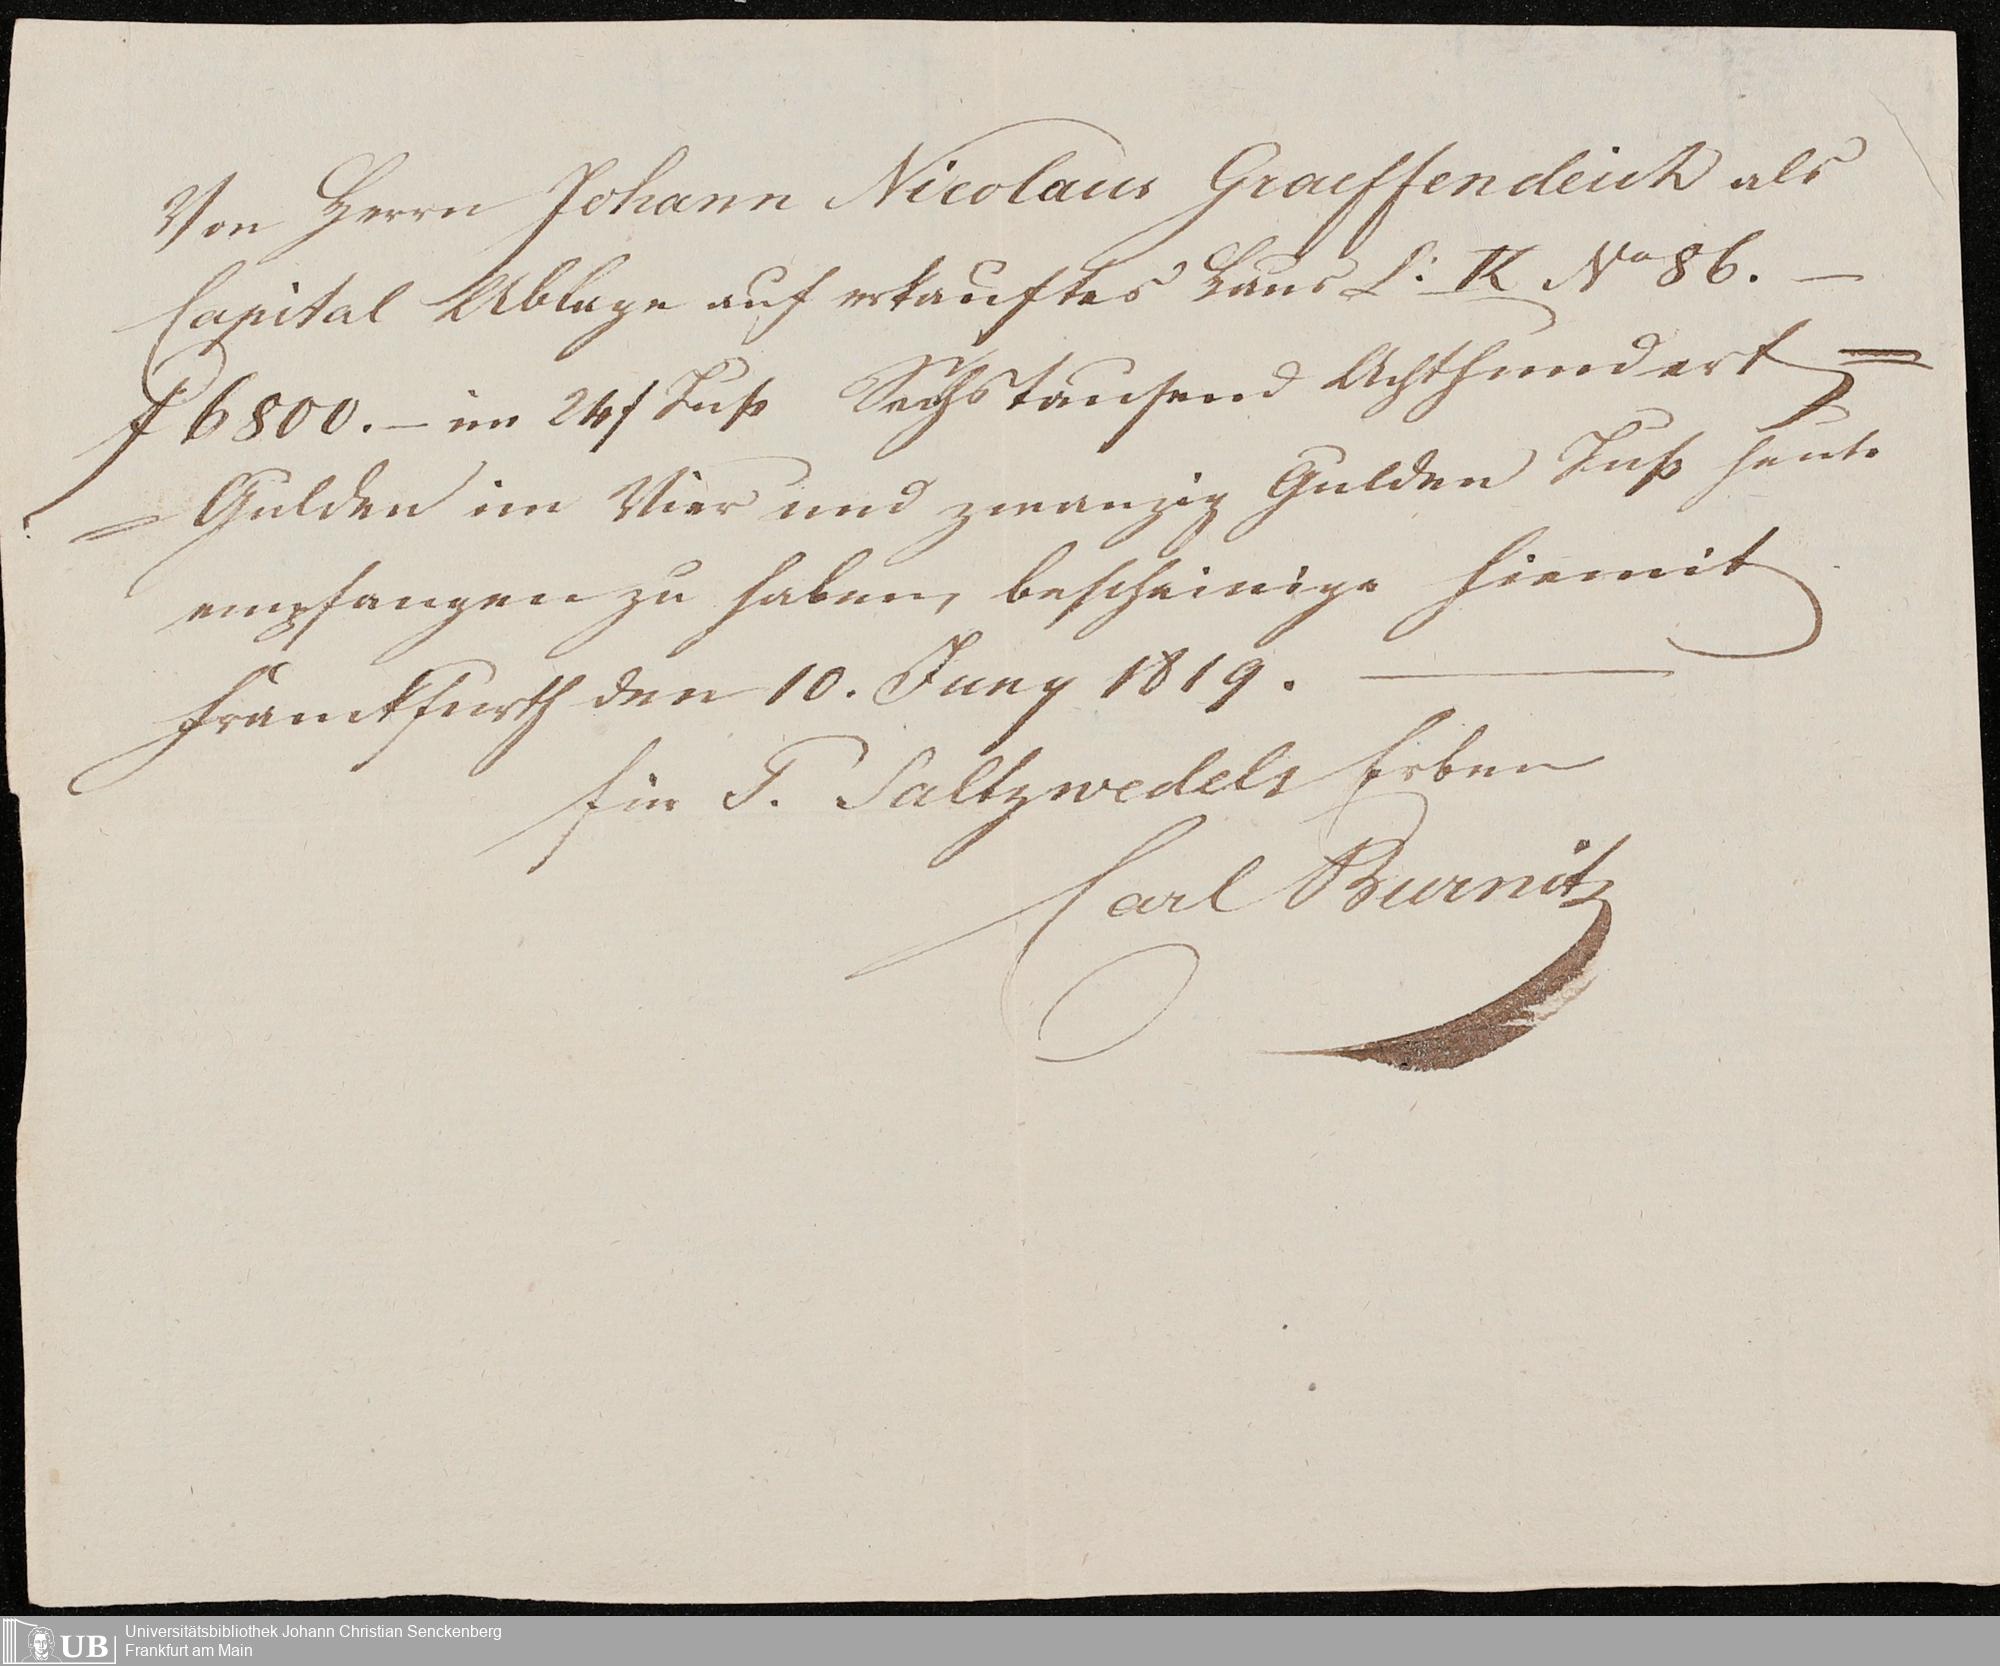 Von Herrn Johann Nicolaus Graeffendeich als
Capital Ablage auf erkauftes Haus L: K Nº 86. —
f 6800. — im 24 f Fuß Sechstausend Achthundert =
= Gulden im Vier und zwanzig Gulden Fuß heute
empfangen zu haben, bescheinige hiemit
Franckfurth den 10. Juny 1819. —
für P. Saltzwedels Erben
Carl Burnitz
UB
Universitätsbibliothek Johann Christian Senckenberg
Frankfurt am Main